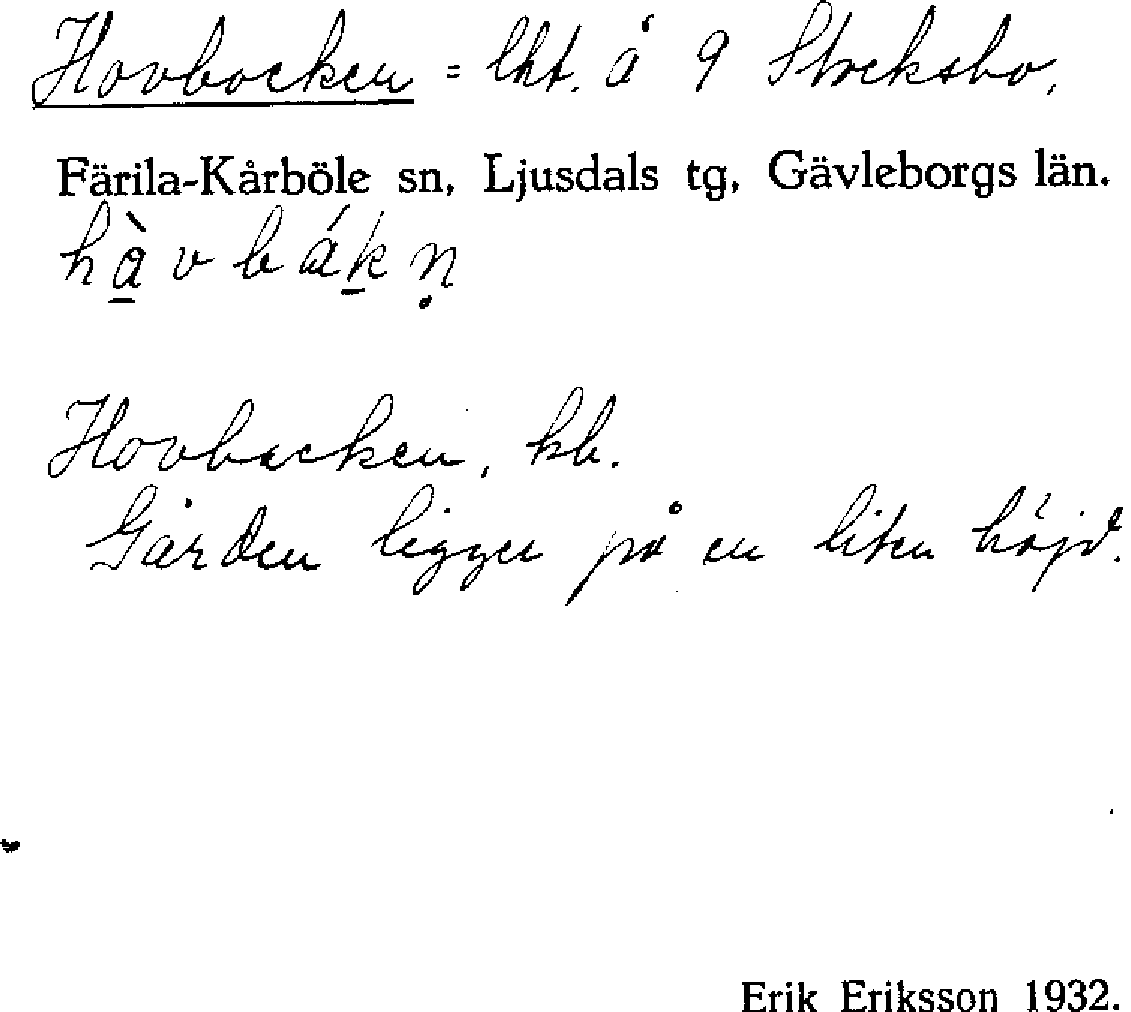 Hovbacken = lht. å 9 Stocksbo,
Färila-Kårböle sn, Ljusdals tg, Gävleborgs län.
hàvbákṇ
Hovbacken, kb.
Gården ligger på en liten höjd.
Erik Eriksson 1932.